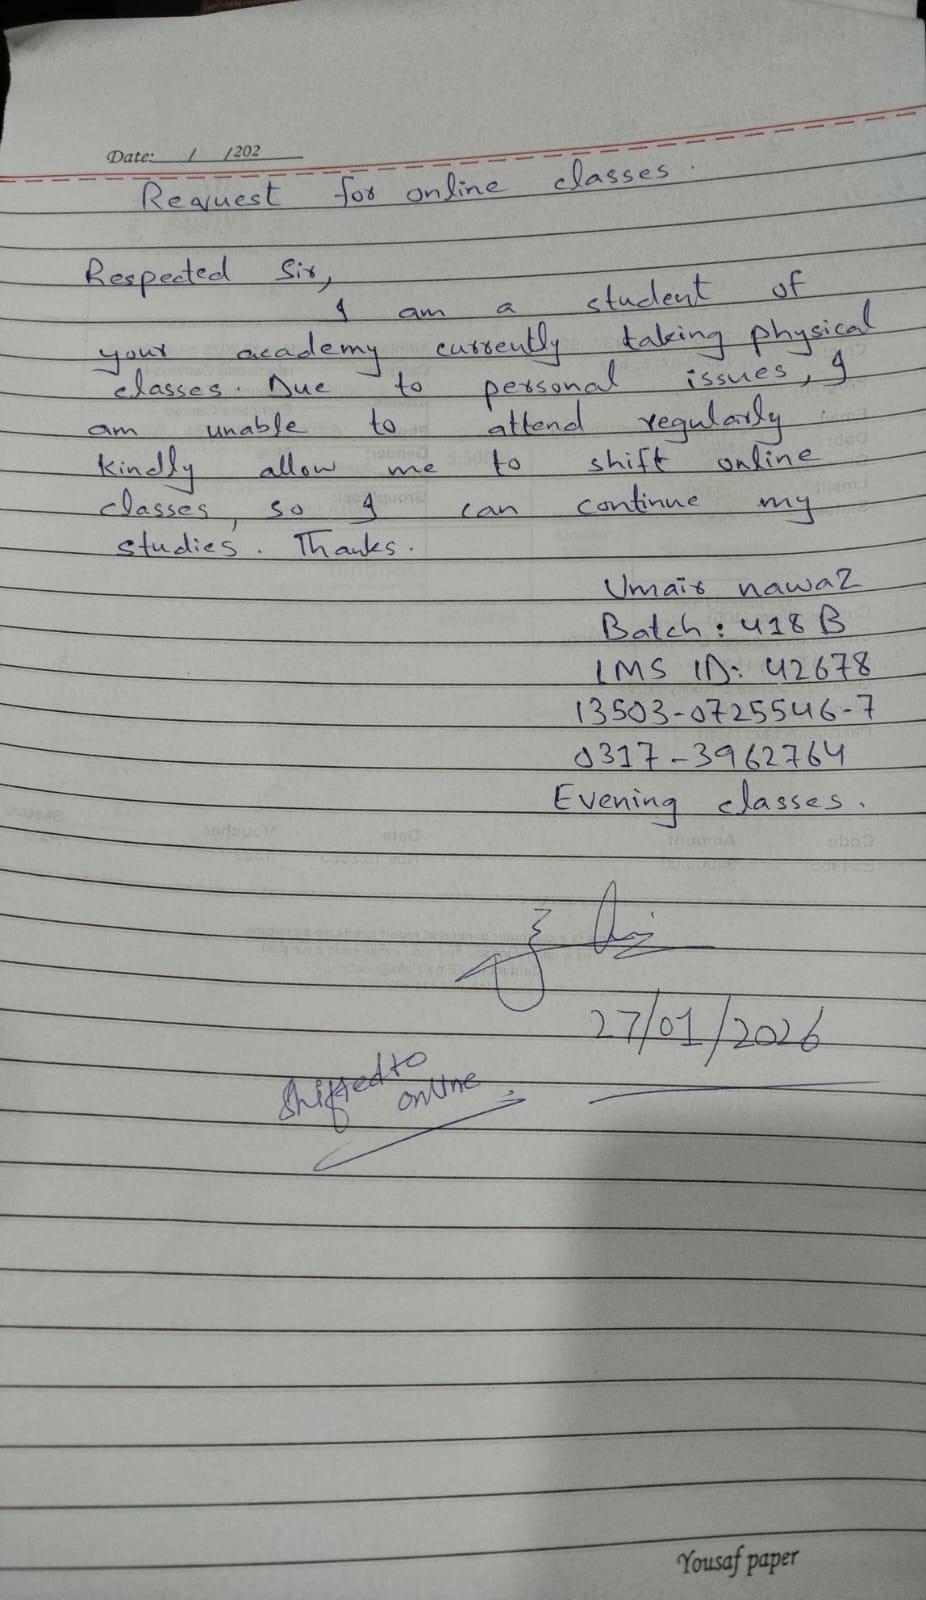 Date: / /202
Request for online classes.
Respected Sir,
I am a student of
your academy currently taking physical
classes. Due to personal issues, I
am unable to attend regularly
kindly allow me to shift online
classes, so I can continue my
studies. Thanks.
Umair nawaz
Batch: 418 B
LMS ID: 42678
13503-0725546-7
0317-3962764
Evening classes.
27/01/2026
Shifted to
online
Yousaf paper